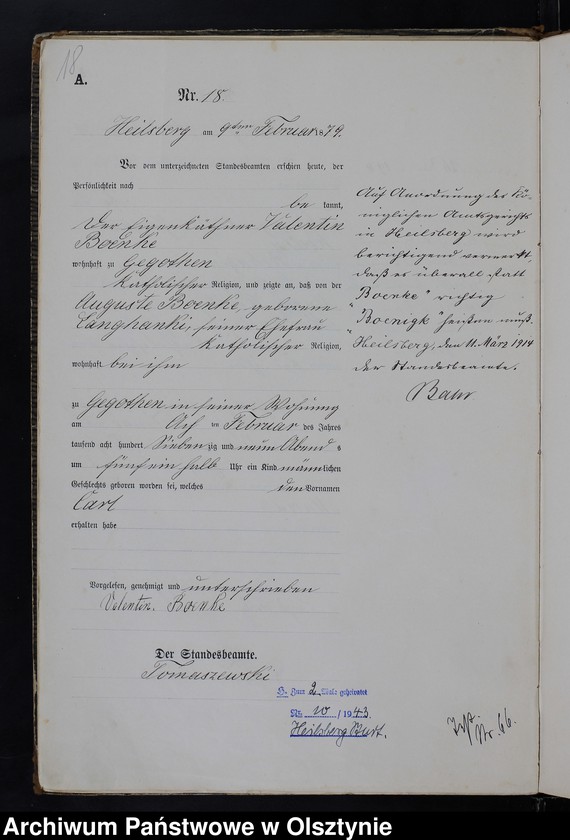 18
A.
Nr. 18.
Heilsberg am 9ten Februar 1879.
Vor dem unterzeichneten Standesbeamten erschien heute, der
Persönlichkeit nach
be kannt,
der Eigenkäthner Valentin
Boenke
wohnhaft zu Gegothen
katholischer Religion, und zeigte an, daß von der
Auguste Boenke, geborene
Langhanki, seiner Ehefrau
katholischer Religion,
wohnhaft bei ihm
zu Gegothen in seiner Wohnung
am ten Februar des Jahres
tausend acht hundert siebenzig und neun Abends
um fünf ein halb Uhr ein Kind männlichen
Geschlechts geboren worden sei, welches den Vornamen
Carl
erhalten habe
Vorgelesen, genehmigt und unterschrieben
Valentin. Boenke
Der Standesbeamte.
Tomaszewski
Auf Anordnung des Kö-
niglichen Amtsgerichts
in Heilsberg wird
berichtigend vermerkt,
daß es überall statt
"Boenke" richtig
"Boenigk" heißen muß.
Heilsberg, den 11. März 1914
der Standesbeamte.
H. Zum 2. Male geheiratet
Nr. 10/1943.
Heilsberg
Nr. 66.
Archiwum Państwowe w Olsztynie